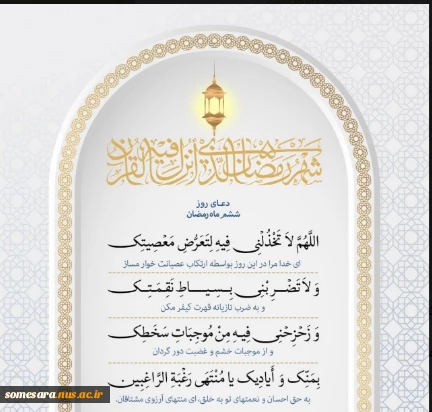 شهر رمضان الذي أنزل فيه القرآن
دعای روز
ششم ماه رمضان
اللَّهُمَّ لاَ تَخْذُلْنِي فِيهِ لِتَعَرُّضِ مَعْصِيَتِكَ
ای خدا مرا در این روز بواسطه ارتکاب عصیانت خوار مساز
وَ لاَ تَضْرِبْنِي بِسِيَاطِ نَقِمَتِكَ
و به ضرب تازیانه قهرت کیفر مکن
وَ زَحْزِحْنِي فِيهِ مِنْ مُوجِبَاتِ سَخَطِكَ
و از موجبات خشم و غضبت دور گردان
بِمَنِّكَ وَ أَيَادِيكَ يَا مُنْتَهَى رَغْبَةِ الرَّاغِبِينَ
به حق احسان و نعمتهای تو به خلق، ای منتهای آرزوی مشتاقان.
somesara.nus.ac.ir